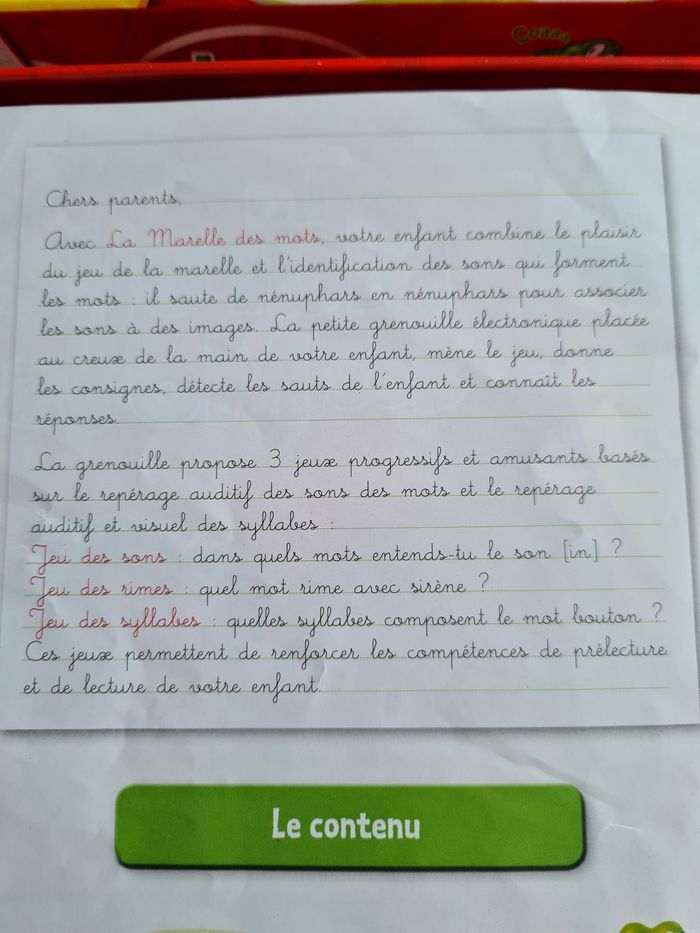 Coaaa
Chers parents,
Avec La Marelle des mots, votre enfant combine le plaisir
du jeu de la marelle et l'identification des sons qui forment
les mots : il saute de nénuphars en nénuphars pour associer
les sons à des images. La petite grenouille électronique placée
au creux de la main de votre enfant, mène le jeu, donne
les consignes, détecte les sauts de l'enfant et connaît les
réponses.
La grenouille propose 3 jeux progressifs et amusants basés
sur le repérage auditif des sons des mots et le repérage
auditif et visuel des syllabes :
Jeu des sons : dans quels mots entends-tu le son [in] ?
Jeu des rimes : quel mot rime avec sirène ?
Jeu des syllabes : quelles syllabes composent le mot bouton ?
Ces jeux permettent de renforcer les compétences de prélecture
et de lecture de votre enfant.
Le contenu